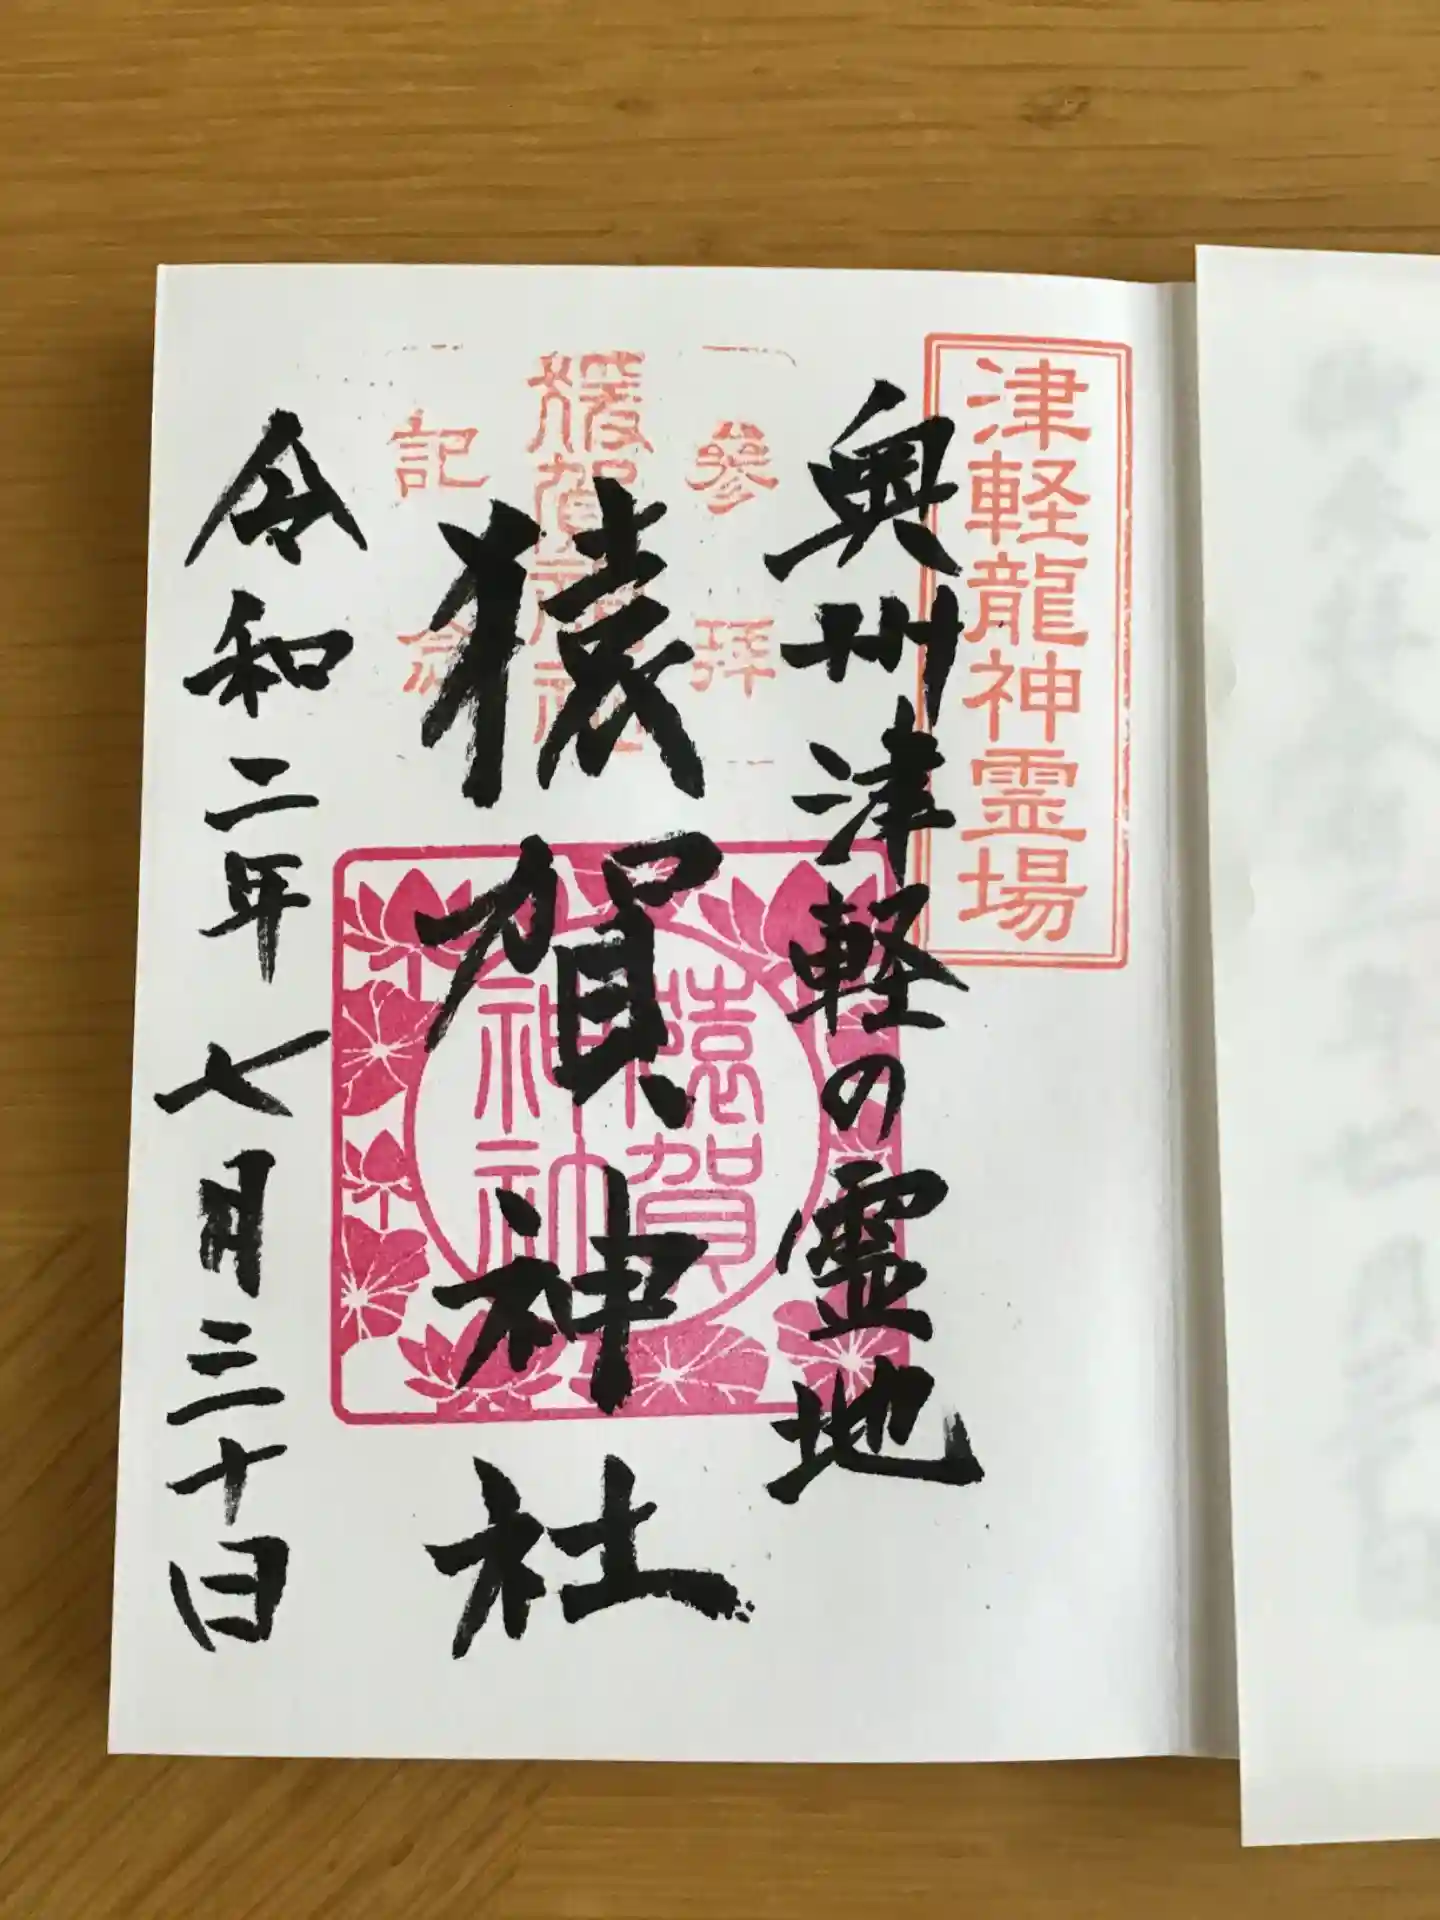 津軽龍神霊場
奥州津軽の霊地
参拝
猿賀神社
記念
猿賀神社
猿賀
神社
令和二年七月三十日